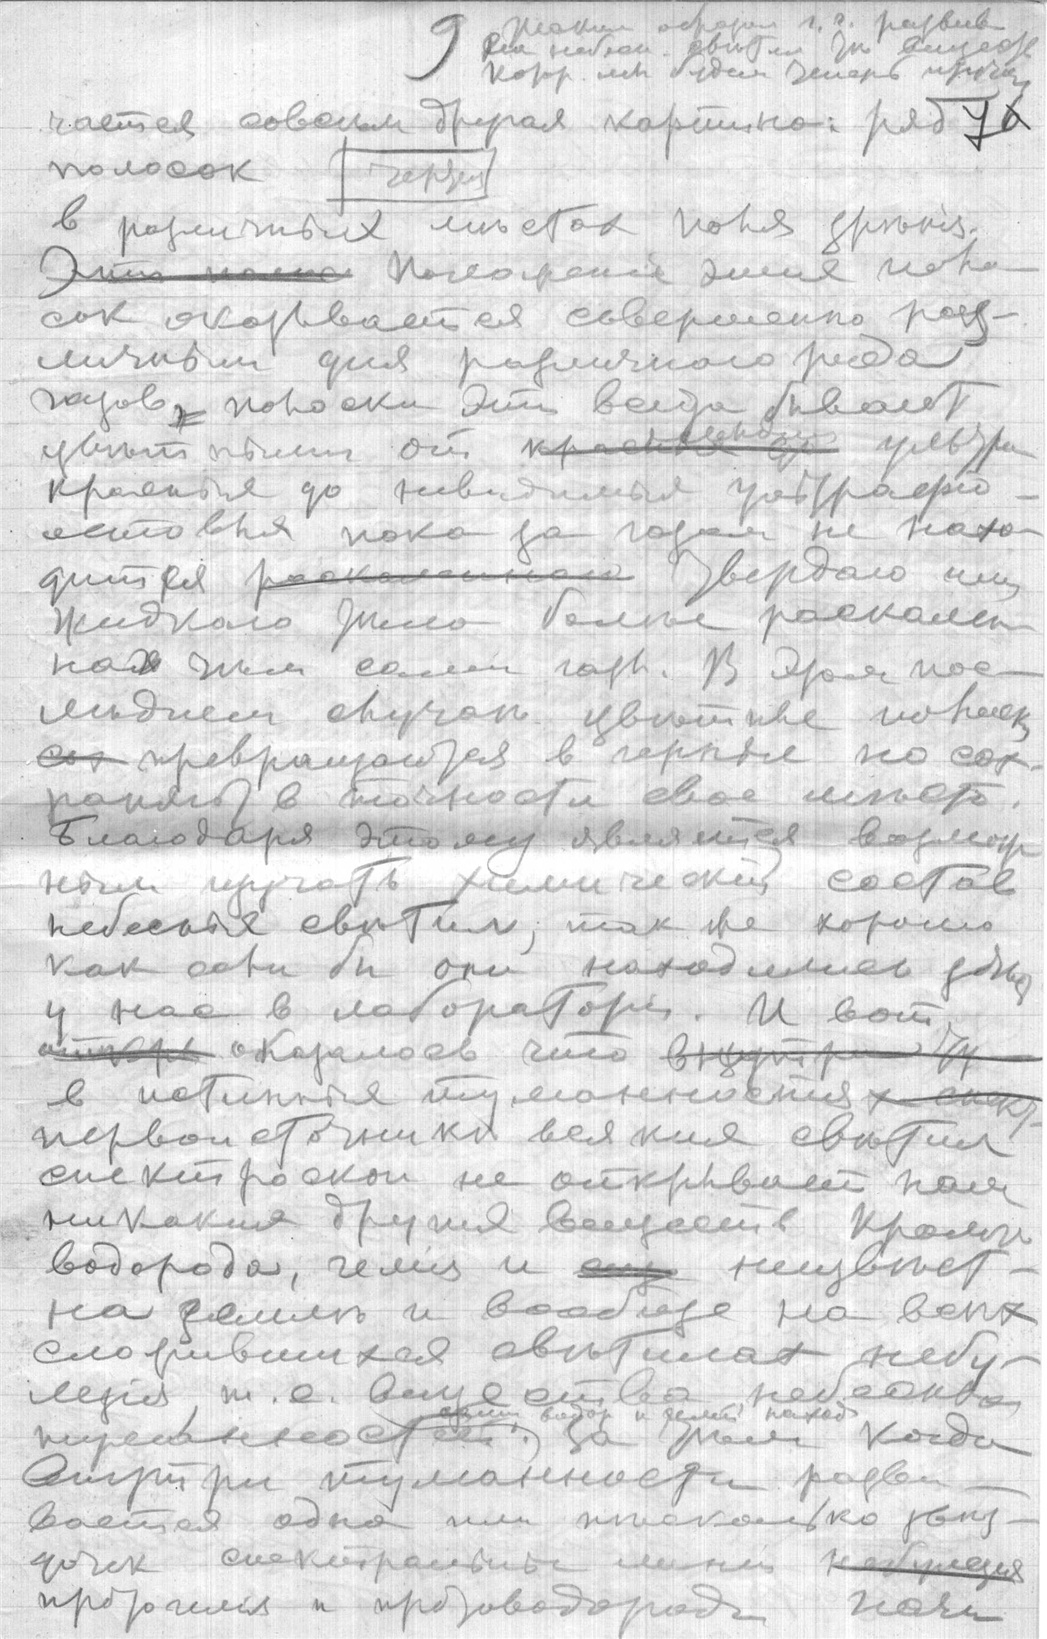 9
Таким образом
чается совсем другая картина: ряд
полосок чертеж
в различных местах поля зрѣнія.
Положеніе этих поло-
сок оказывается совершенно раз-
личным для различного рода
газов, полоски эти всегда бывают
цвѣтными от ультра
красных до невидимых ультрафіо-
летовых пока за газом не нахо-
дится раскаленного твердаго или
жидкаго тѣла болѣе раскален-
наго чѣм самый газ. В этом пос-
лѣднем случаѣ цвѣтные полоски
превращаются в черные но сох-
раняют в точности свое мѣсто.
Благодаря этому является возмож
ным изучать химическій состав
небесных свѣтил, так же хорошо
как если бы они находились
у нас в лабораторіи. И вот
оказалось что внутри
в истинных туманностях
первоисточники всяких свѣтил
спектроскоп не открывает нам
никаких других веществ кромѣ
водорода, гелія и неизвѣст-
на землѣ и вообще на всѣх
сложившихся свѣтилах небу-
лезія, т. е. вещества небесных
туманностей. За тѣм когда
внутри туманности разви-
вается одна или нѣсколько звѣз-
дочек спектральные линіи небулезія
протогелія и протоводорода